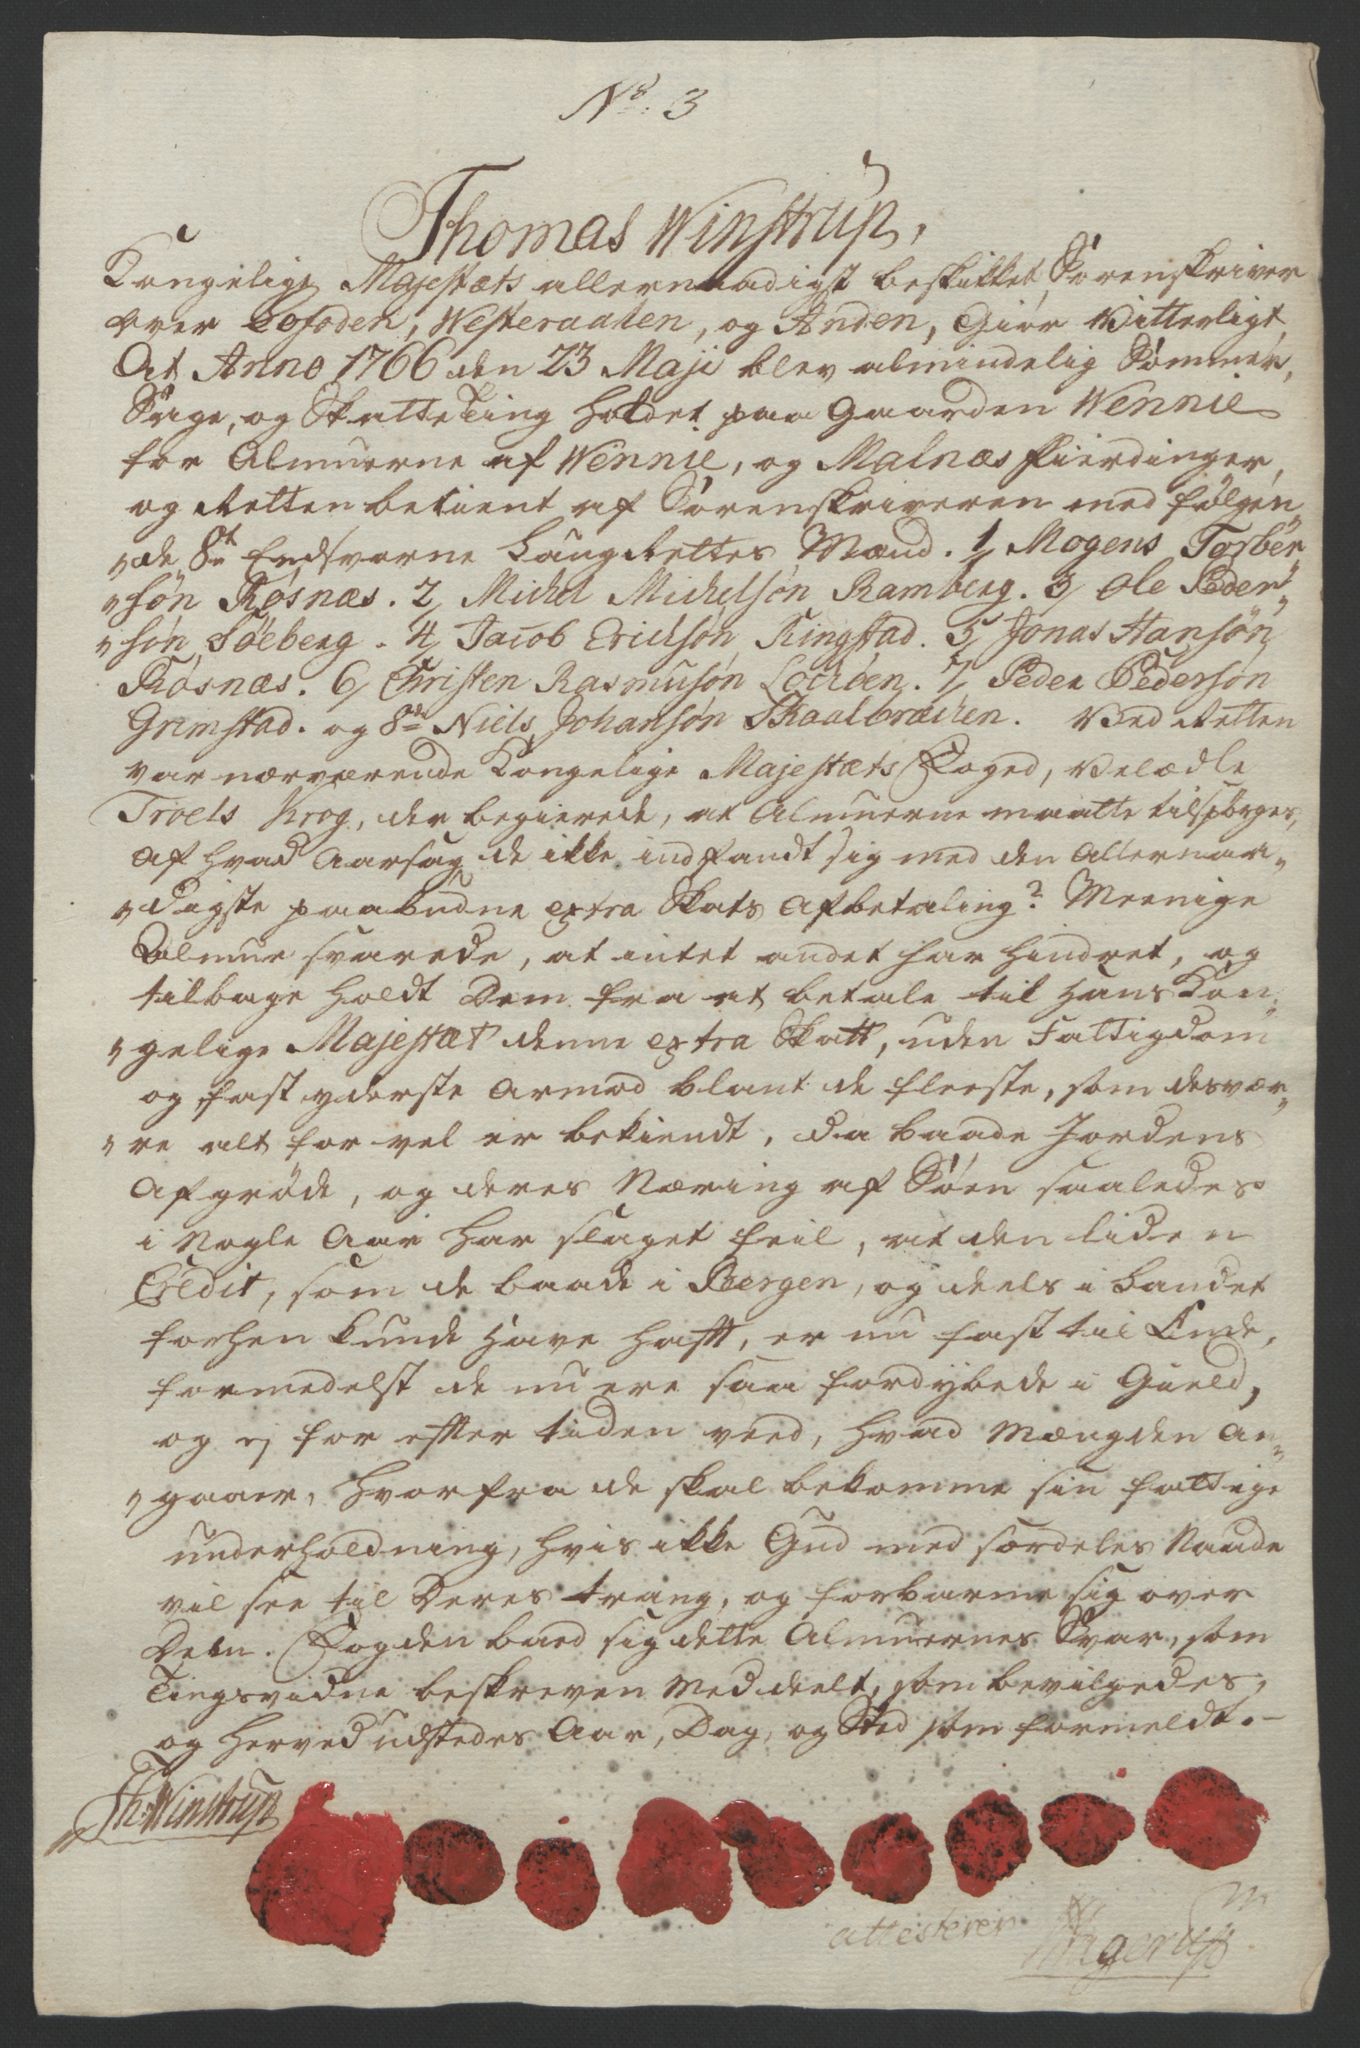 No. 3
Thomas Winstrup,
Kongelige Majestæts allernaadigst beskikket Sorenskriver
over Lofoden, Westeraalen, og Anden, Giør Vitterligt
At Anno 1766 den 23 Maji blev almindelig Sommer,
Sage, og Skatte Ting holdet paa Gaarden Wennie
for Almuerne af Wennie, og Malnæs Fierdinger,
og Retten betient af Sorenskriveren med følgen„
„de 8te Eedsvorne Laug Rettes Mænd. 1/ Mogens Torber„
„søn Røsnæs. 2/ Michel Michelsøn Ramberg. 3/ Ole Peder„
„søn Søeberg. 4/ Jacob Ericksøn Ringstad. 5/ Jonas Hansøn
Røsnæs. 6/ Christen Rasmusøn Lochøen. 7/ Peder Pedersøn
Grimstad. og 8de Niels Johansøn Skaalbrächen. Ved Retten
var nærværende Kongelige Majestæts Foged, Velædle
Troels Krog, der begierede, at Almuerne maatte tilspørges,
af hvad Aarsag de ikke indfandt sig med den Allernaa„
„digste paabudne extra Skats Afbetaling? Meenige
Almue svarede, at intet andet har hindret, og
tilbage holdt Dem fra at betale til Hans Kon„
„gelige Majestæt denne extra Skatt, uden Fattigdom
og fast yderste Armod blant de fleeste, som desvær„
„re alt for vel er bekiendt, da baade Jordens
Afgrøde, og deres Næring af Søen saaledes
i Nogle Aar har slaget feil, at den liden
Credit, som de baade i Bergen, og deels i Landet
forhen kunde have hafft, er nu fast til Ende,
formedelst de nu ere saa fordybede i Gield,
og ej for effter tiden veed, hvad Mængden an„
„gaaer, hvorfra de skal bekomme sin fattige
underholdning, hvis ikke Gud med særdeles Naade
vil see til Deres trang, og forbarme sig over
Dem. Fogden bad sig dette Almuernes Svar, som
Tingsvidne beskreven Meddeelt, som bevilgedes,
og herved udstedes Aar, Dag, og Sted som formeldt.
Th: Winstrup
attesterer